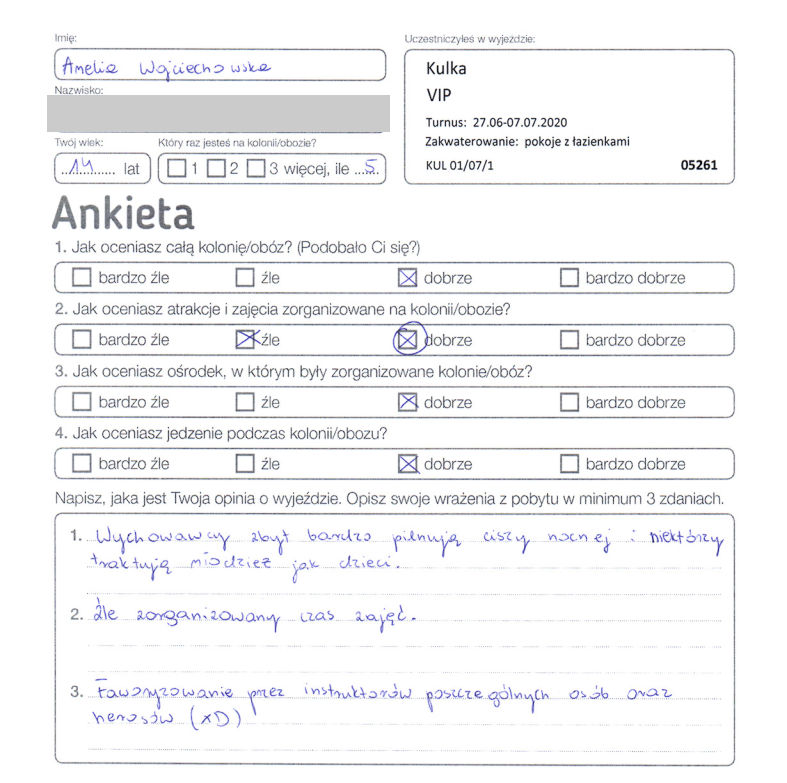 Imię:
Amelia Wojciechowska
Nazwisko:
Twój wiek:
14 lat
Który raz jesteś na kolonii/obozie?
1 2 3 więcej, ile 5.
Uczestniczyłeś w wyjeździe:
Kulka
VIP
Turnus: 27.06-07.07.2020
Zakwaterowanie: pokoje z łazienkami
KUL 01/07/1 05261
Ankieta
1. Jak oceniasz całą kolonię/obóz? (Podobało Ci się?)
bardzo źle źle dobrze bardzo dobrze
2. Jak oceniasz atrakcje i zajęcia zorganizowane na kolonii/obozie?
bardzo źle źle dobrze bardzo dobrze
3. Jak oceniasz ośrodek, w którym były zorganizowane kolonie/obóz?
bardzo źle źle dobrze bardzo dobrze
4. Jak oceniasz jedzenie podczas kolonii/obozu?
bardzo źle źle dobrze bardzo dobrze
Napisz, jaka jest Twoja opinia o wyjeździe. Opisz swoje wrażenia z pobytu w minimum 3 zdaniach.
1. Wychowawcy zbyt bardzo pilnują ciszy nocnej i niektórzy
traktują młodzież jak dzieci.
2. źle zorganizowany czas zajęć.
3. Faworyzowanie przez instruktorów poszczególnych osób oraz
herosów (xD)